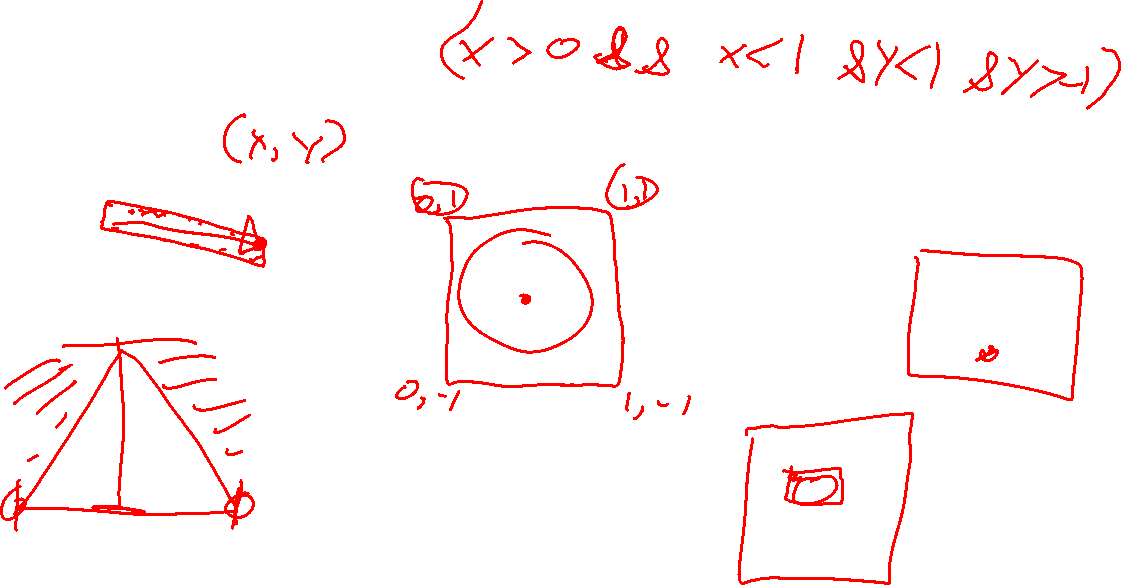 (x > 0 && x < 1 & y < 1 & y > -1)
(x, y)
0, 1
1, 1
0, -1
1, -1